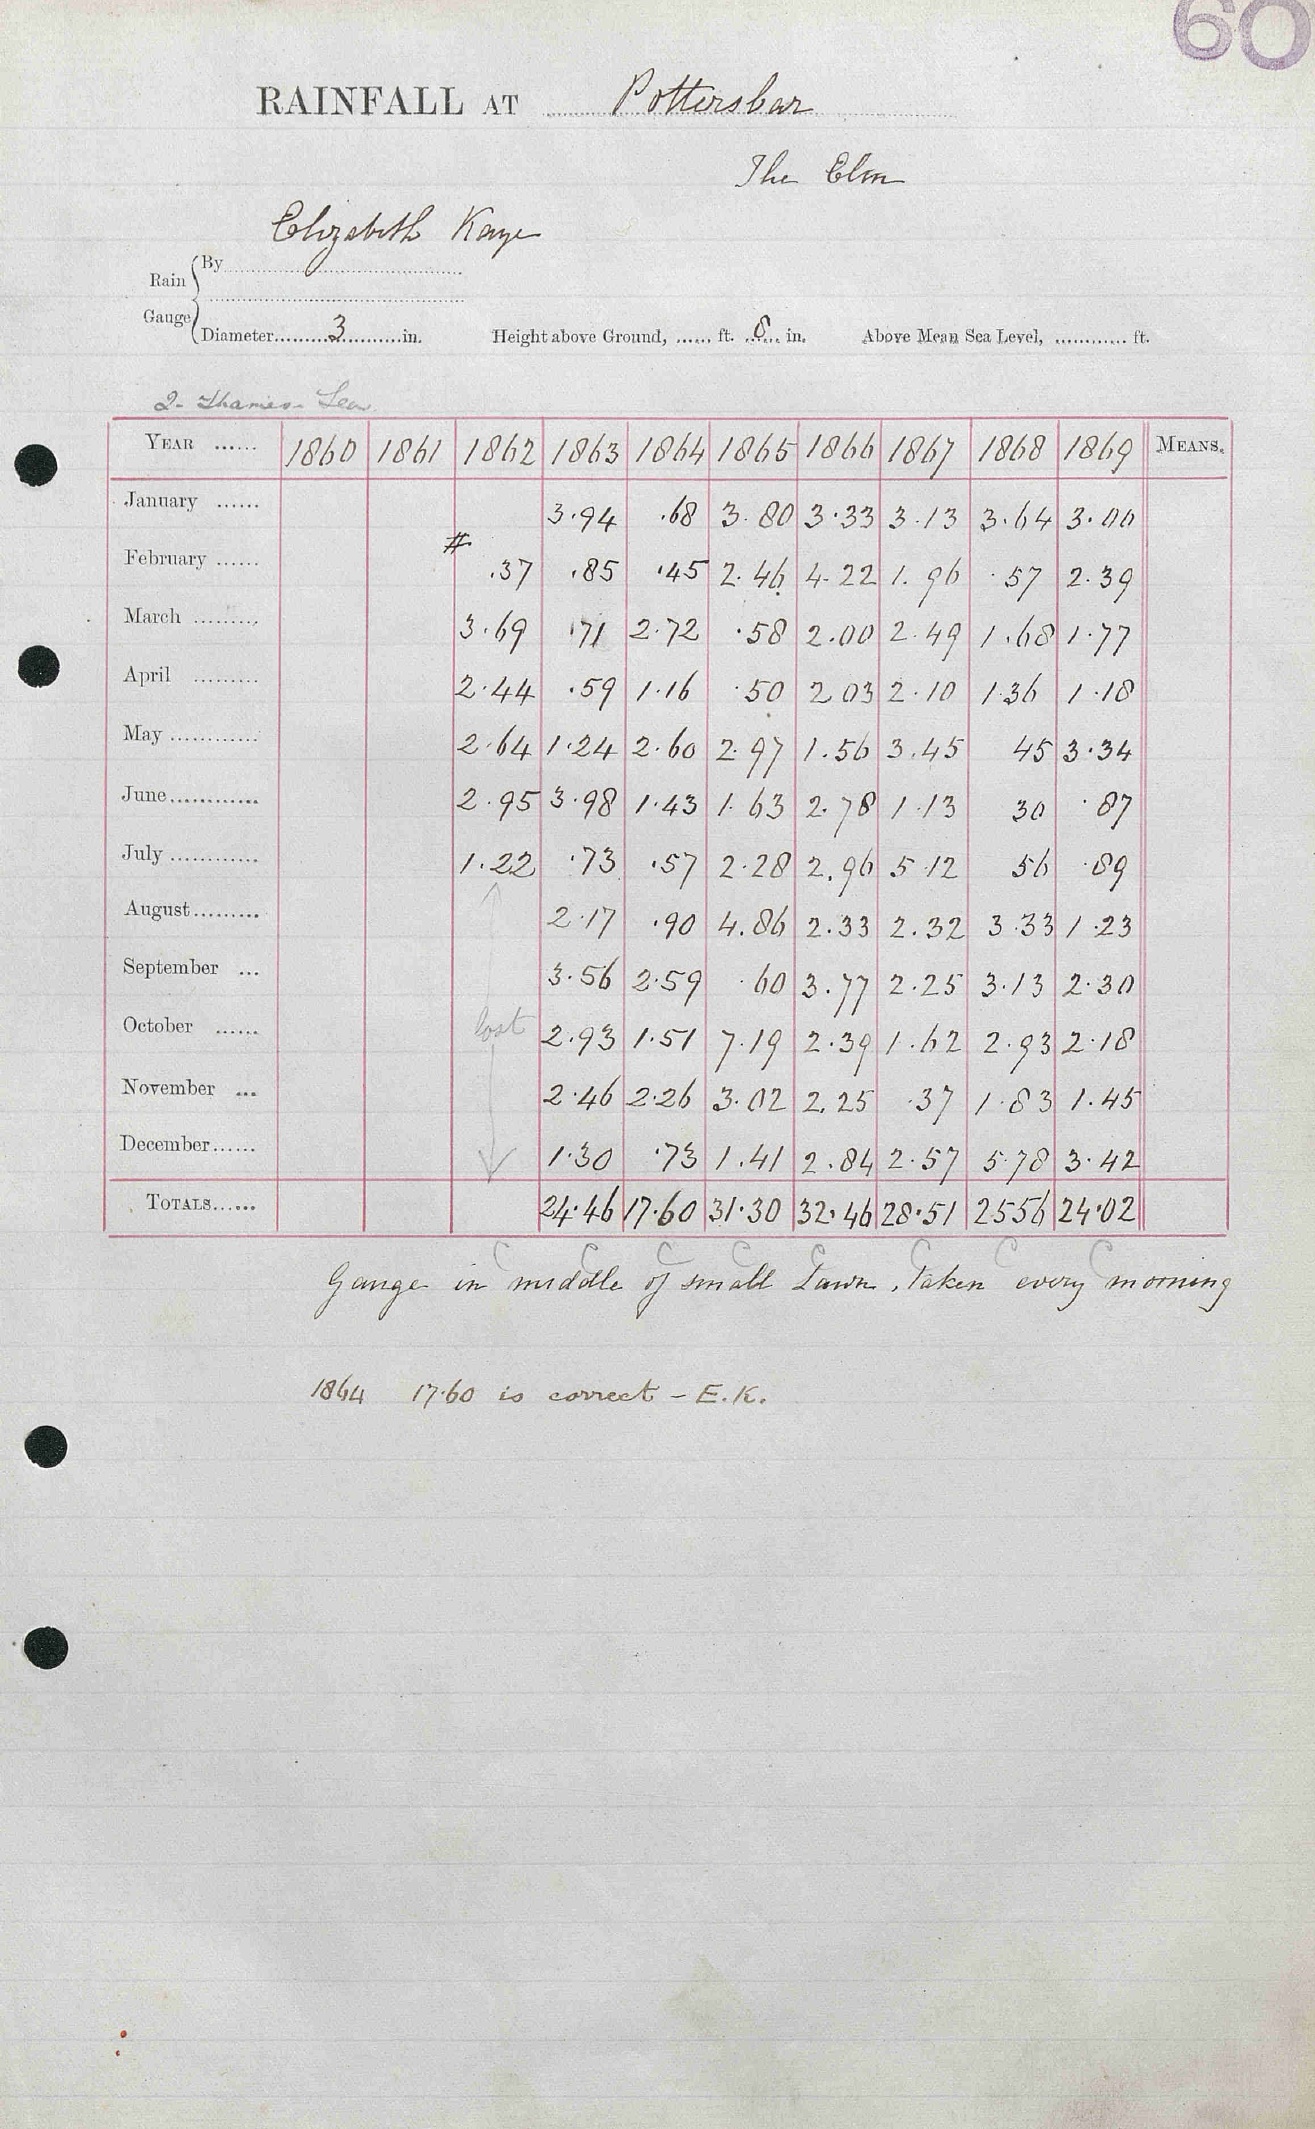 60
RAINFALL AT Pottersbar
The Elm
Elizabeth Kaye
Rain Gauge By
Diameter 3 in. Height above Ground, ...... ft. 8 in. Above Mean Sea Level, ............ ft.
2- Thames - Lea
YEAR ...... 1860 1861 1862 1863 1864 1865 1866 1867 1868 1869 MEANS.
January ...... 3.94 .68 3.80 3.33 3.13 3.64 3.00
February ...... # .37 .85 .45 2.46 4.22 1.96 .57 2.39
March ......... 3.69 .71 2.72 .58 2.00 2.49 1.68 1.77
April ......... 2.44 .59 1.16 .50 2 03 2.10 1.36 1.18
May ............ 2.64 1.24 2.60 2.97 1.56 3.45 45 3.34
June............ 2.95 3.98 1.43 1.63 2.78 1.13 30 .87
July ............ 1.22 .73 .57 2.28 2.96 5.12 56 .89
August......... 2.17 .90 4.86 2.33 2.32 3.33 1.23
September ... 3.56 2.59 .60 3.77 2.25 3.13 2.30
October ...... lost 2.93 1.51 7.19 2.39 1.62 2.93 2.18
November ... 2.46 2.26 3.02 2.25 .37 1.83 1.45
December...... 1.30 .73 1.41 2.84 2.57 5.78 3.42
TOTALS...... 24.46 17.60 31.30 32.46 28.51 2556 24.02
C C C C C C C C
Gauge in middle of small Lawn, Taken every morning
1864 17.60 is correct - E.K.